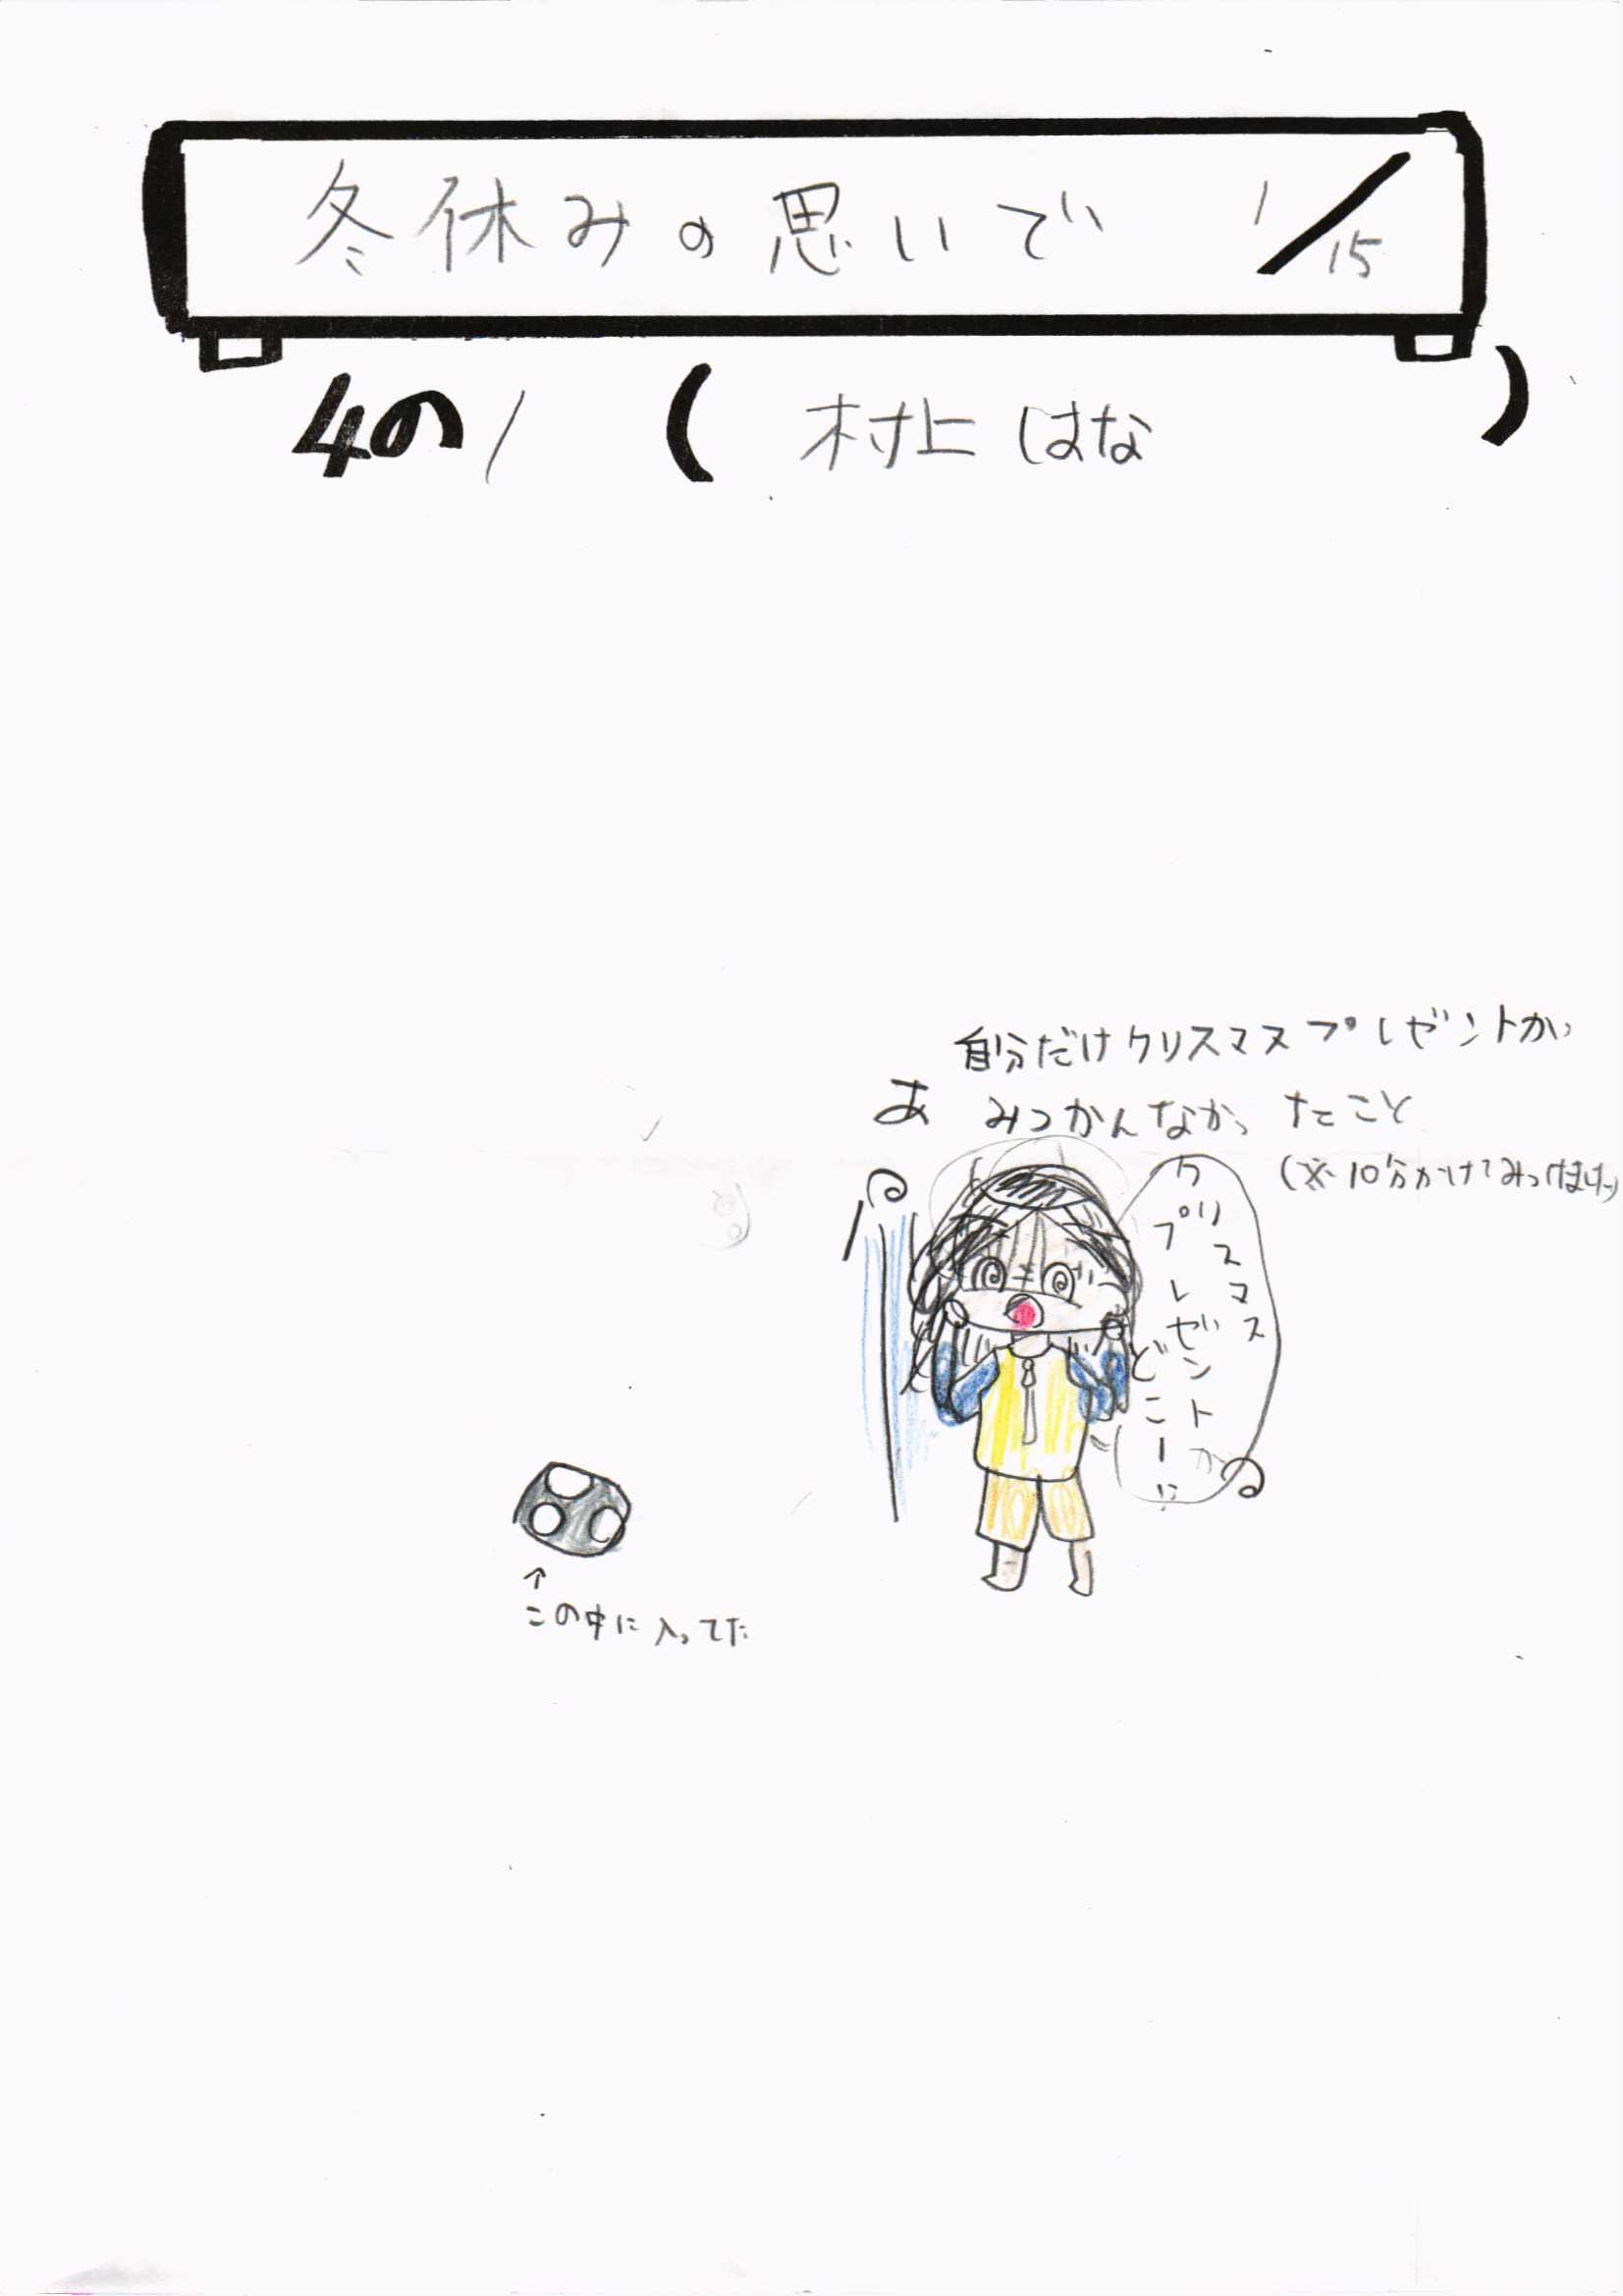 冬休みの思いで 1/15
4の1 (村上はな)
自分だけクリスマスプレゼントが
みつかんなかったこと
(※10分かけてみつけました)
あ
クリスマス
プレゼントが
どこー!!
↑
この中に入ってた